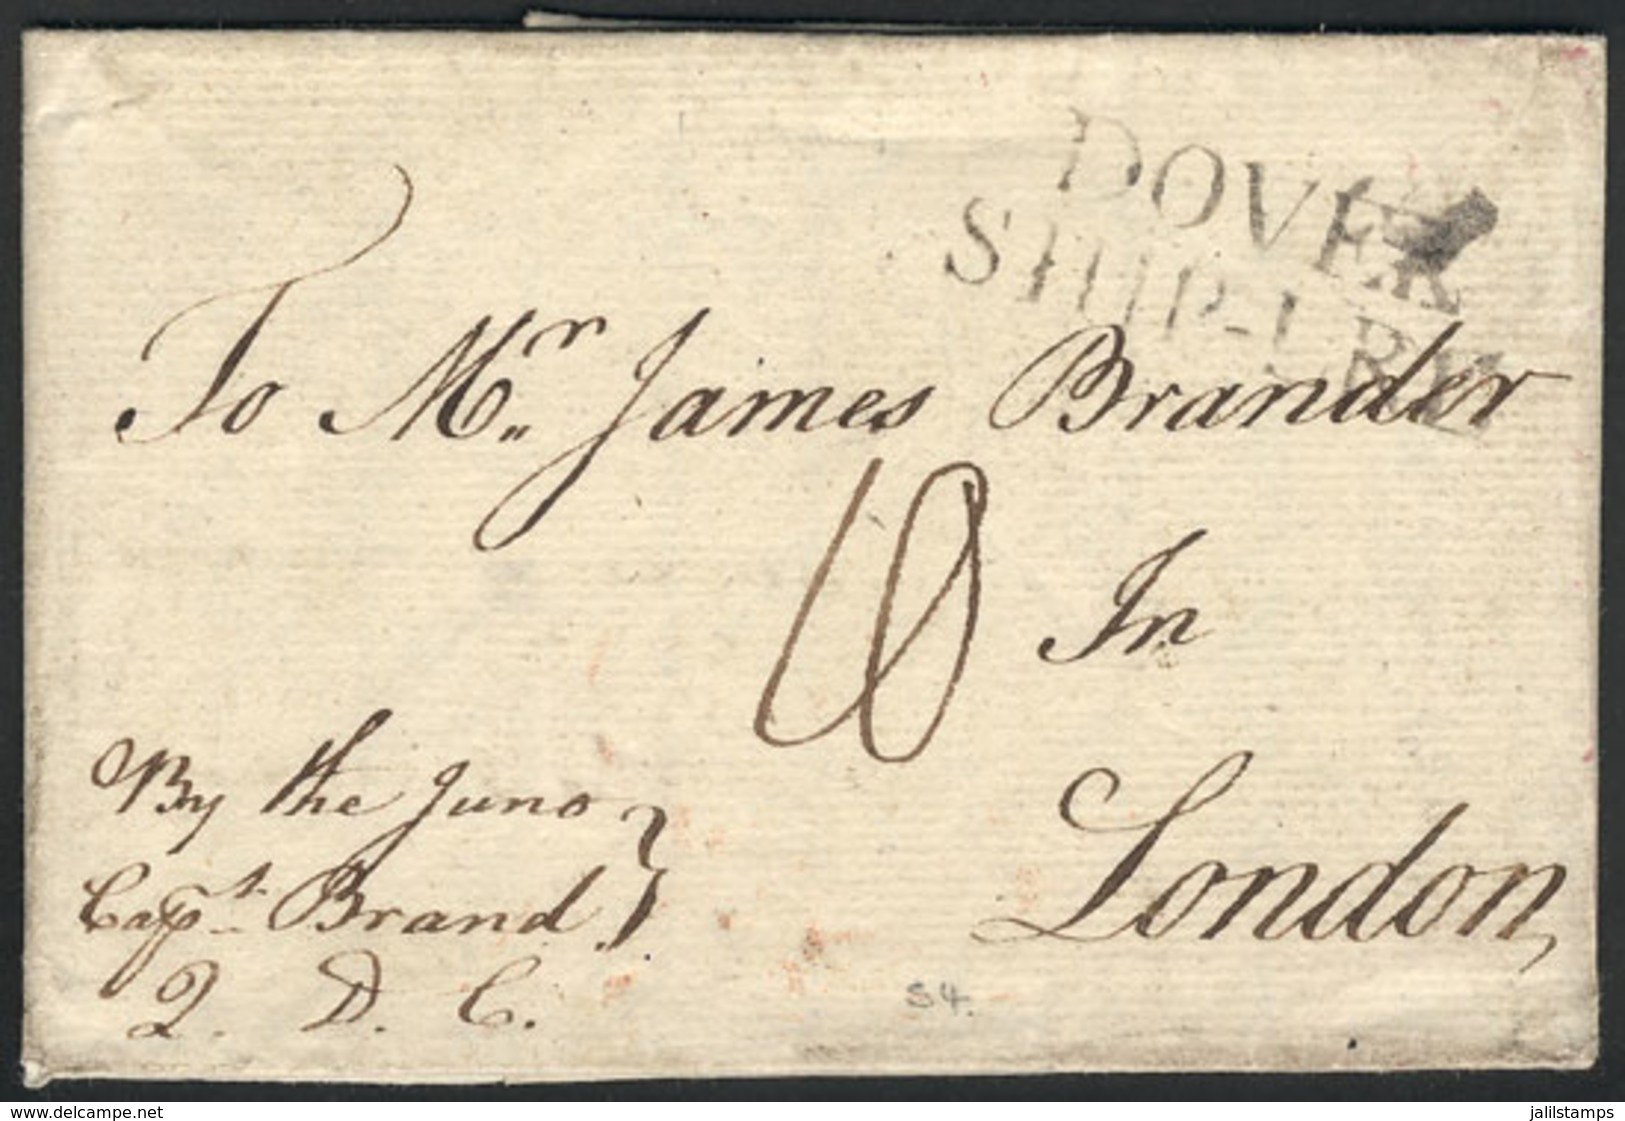 DOVER
SHIP-LRE
To Mr. James Brander
10
In
London,
By the Juno
Capt. Brand
2. D. C.
S4.
www.delcampe.net
jalilstamps